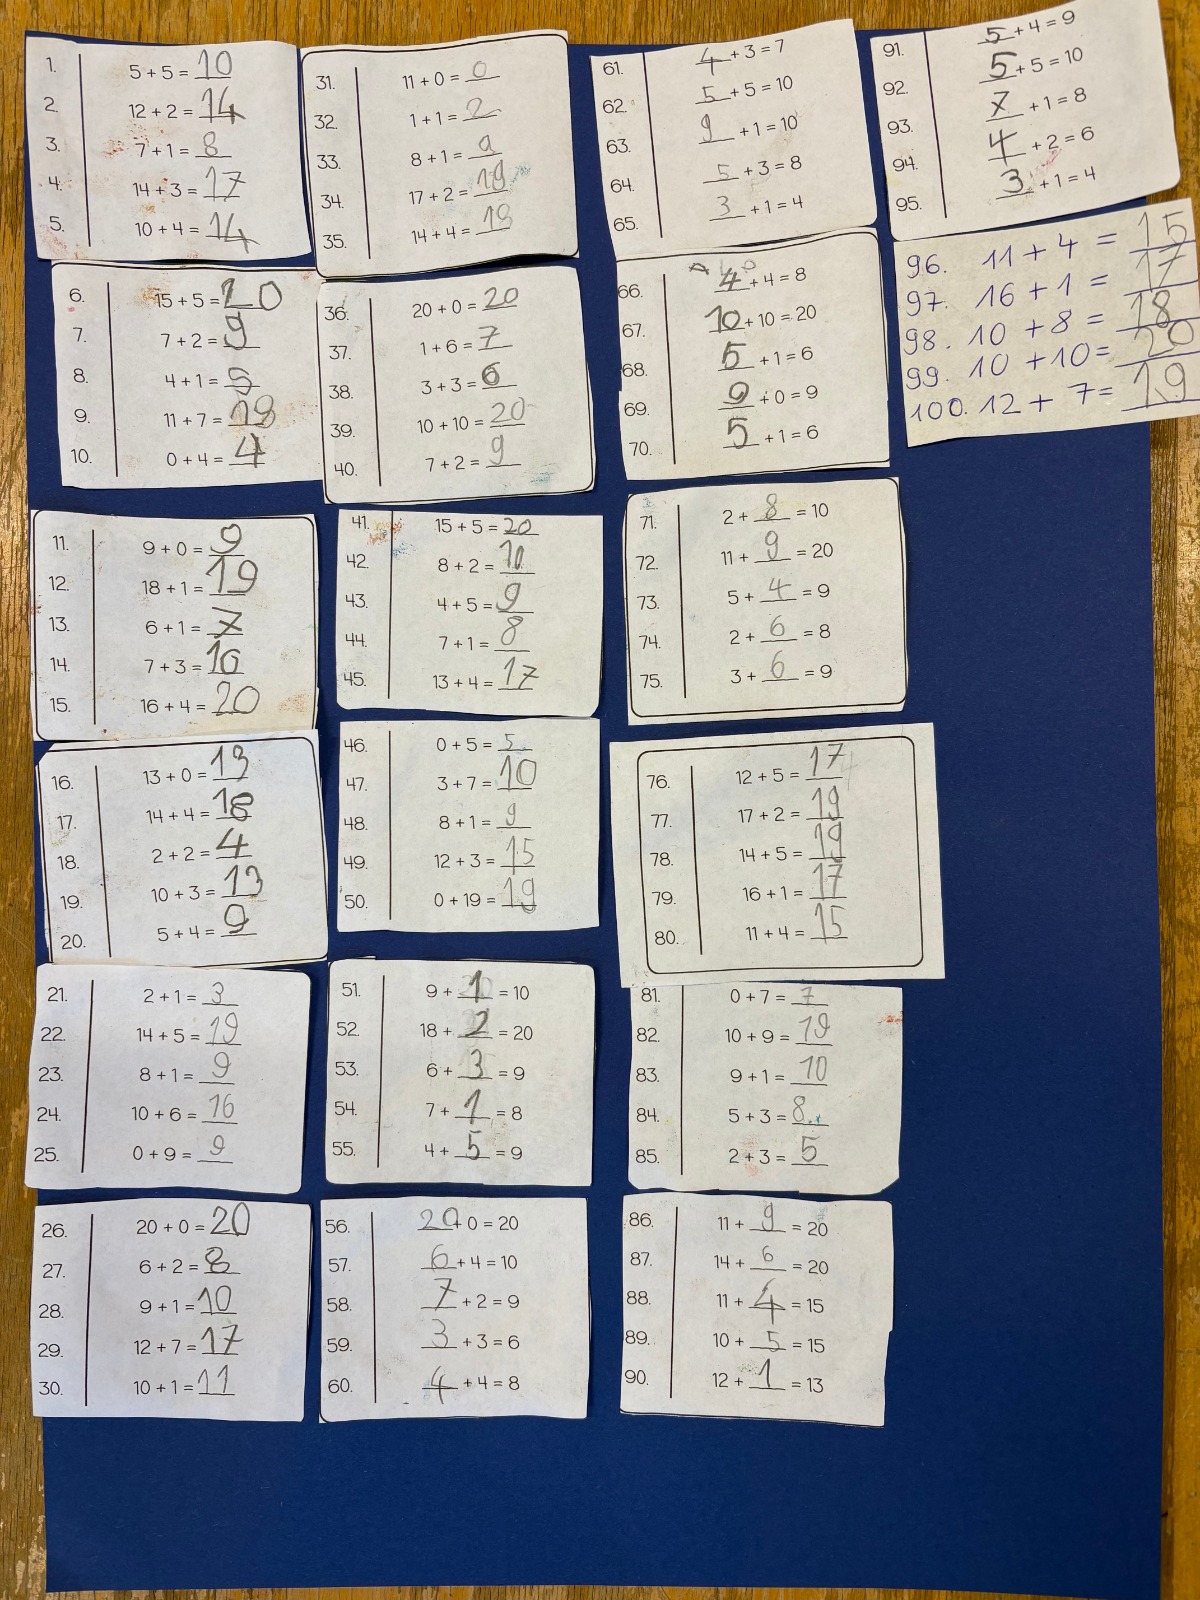 1. 5 + 5 = 10
2. 12 + 2 = 14
3. 7 + 1 = 8
4. 14 + 3 = 17
5. 10 + 4 = 14
6. 15 + 5 = 20
7. 7 + 2 = 9
8. 4 + 1 = 5
9. 11 + 7 = 18
10. 0 + 4 = 4
11. 9 + 0 = 9
12. 18 + 1 = 19
13. 6 + 1 = 7
14. 7 + 3 = 10
15. 16 + 4 = 20
16. 13 + 0 = 13
17. 14 + 4 = 18
18. 2 + 2 = 4
19. 10 + 3 = 13
20. 5 + 4 = 9
21. 2 + 1 = 3
22. 14 + 5 = 19
23. 8 + 1 = 9
24. 10 + 6 = 16
25. 0 + 9 = 9
26. 20 + 0 = 20
27. 6 + 2 = 8
28. 9 + 1 = 10
29. 12 + 7 = 17
30. 10 + 1 = 11
31. 11 + 0 = 0
32. 1 + 1 = 2
33. 8 + 1 = 9
34. 17 + 2 = 19
35. 14 + 4 = 18
36. 20 + 0 = 20
37. 1 + 6 = 7
38. 3 + 3 = 6
39. 10 + 10 = 20
40. 7 + 2 = 9
41. 15 + 5 = 20
42. 8 + 2 = 10
43. 4 + 5 = 9
44. 7 + 1 = 8
45. 13 + 4 = 17
46. 0 + 5 = 5
47. 3 + 7 = 10
48. 8 + 1 = 9
49. 12 + 3 = 15
50. 0 + 19 = 19
51. 9 + 1 = 10
52. 18 + 2 = 20
53. 6 + 3 = 9
54. 7 + 1 = 8
55. 4 + 5 = 9
56. 20 + 0 = 20
57. 6 + 4 = 10
58. 7 + 2 = 9
59. 3 + 3 = 6
60. 4 + 4 = 8
61. 4 + 3 = 7
62. 5 + 5 = 10
63. 9 + 1 = 10
64. 5 + 3 = 8
65. 3 + 1 = 4
66. 4 + 4 = 8
67. 10 + 10 = 20
68. 5 + 1 = 6
69. 9 + 0 = 9
70. 5 + 1 = 6
71. 2 + 8 = 10
72. 11 + 9 = 20
73. 5 + 4 = 9
74. 2 + 6 = 8
75. 3 + 6 = 9
76. 12 + 5 = 17
77. 17 + 2 = 19
78. 14 + 5 = 19
79. 16 + 1 = 17
80. 11 + 4 = 15
81. 0 + 7 = 7
82. 10 + 9 = 19
83. 9 + 1 = 10
84. 5 + 3 = 8
85. 2 + 3 = 5
86. 11 + 9 = 20
87. 14 + 6 = 20
88. 11 + 4 = 15
89. 10 + 5 = 15
90. 12 + 1 = 13
91. 5 + 4 = 9
92. 5 + 5 = 10
93. 7 + 1 = 8
94. 4 + 2 = 6
95. 3 + 1 = 4
96. 11 + 4 = 15
97. 16 + 1 = 17
98. 10 + 8 = 18
99. 10 + 10 = 20
100. 12 + 7 = 19